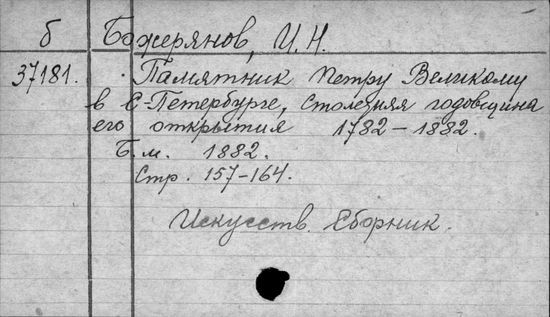 б Божерянов, И. Н.
37181. Памятник Петру Великому
в С-Петербурге, столетняя годовщина
его открытия 1782-1882.
Б. м. 1882.
Стр. 157-164.
Искусств. Сборник.